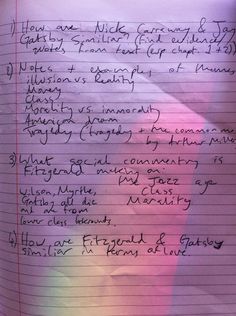 1) How are Nick Carreway & Jay
Gatsby Similiar (find evidence/
quotes from text (esp chapt. 1 + 2))
2) Notes + examples of themes
illusion vs Reality
Money
Class
Morality vs immorality
American dream
Tragedy (tragedy + the common man
by Arthur Miller
3) What social commentry is
Fitzgerald making on:
the Jazz age
Wilson, Myrtle, Class
Gatsby all die Marality
and are from
lower class backrounds.
4) How are Fitzgerald & Gatsby
similiar in terms of love.